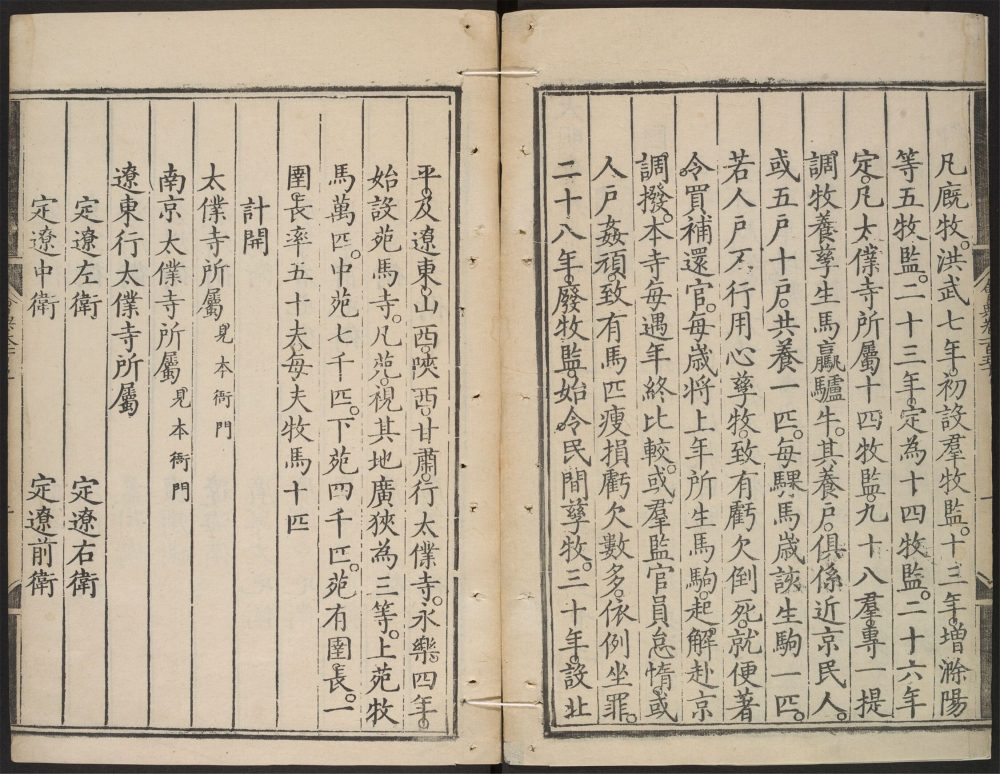 凡廐牧。洪武七年。初設羣牧監。十三年。增滁陽
等五牧監。二十三年。定為十四牧監。二十六年
定。凡太僕寺所屬十四牧監。九十八羣。專一提
調牧養孳生馬驘驢牛。其養戶。俱係近京民人。
或五戶十戶。共養一匹。每騍馬歲該生駒一匹。
若人戶不行用心孳牧。致有虧欠倒死。就便著
令買補還官。每歲將上年所生馬駒。起解赴京
調撥。本寺每遇年終比較。或羣監官員怠惰。或
人戶姦頑。致有馬匹瘦損虧欠數多。依例坐罪。
二十八年。廢牧監。始令民間孳牧。三十年。設北
平。及遼東。山西。陝西。甘肅。行太僕寺。永樂四年。
始設苑馬寺。凡苑。視其地廣狹為三等。上苑牧
馬萬匹。中苑七千匹。下苑四千匹。苑有圉長。一
圉長率五十夫。每夫牧馬十匹
計開
太僕寺所屬見本衙門
南京太僕寺所屬見本衙門
遼東行太僕寺所屬
定遼左衛 定遼右衛
定遼中衛 定遼前衛